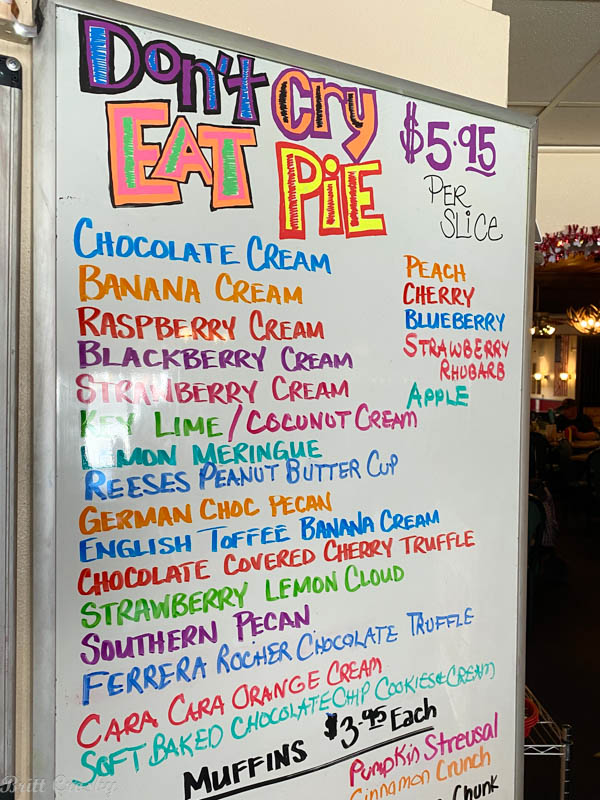 Don't Cry
EAT PiE
$5.95
PER
SLiCe
CHOCOLATE CREAM
BANANA CREAM
RASPBERRY CREAM
BLACKBERRY CREAM
STRAWBERRY CREAM
KEY LIME/COCUNUT CREAM
LEMON MERINGUE
REESES PEANUT BUTTER CUP
GERMAN CHOC PECAN
ENGLISH TOFFEE BANANA CREAM
CHOCOLATE COVERED CHERRY TRUFFLE
STRAWBERRY LEMON CLOUD
SOUTHERN PECAN
FERRERA ROCHER CHOCOLATE TRUFFLE
CARA CARA ORANGE CREAM
SOFT BAKED CHOCOLATE CHIP COOKIES & CREAM
PEACH
CHERRY
BLUEBERRY
STRAWBERRY
RHUBARB
APPLE
MUFFINS $3.95 Each
Pumpkin Streusal
Cinnamon Crunch
Chunk
Britt Crosby